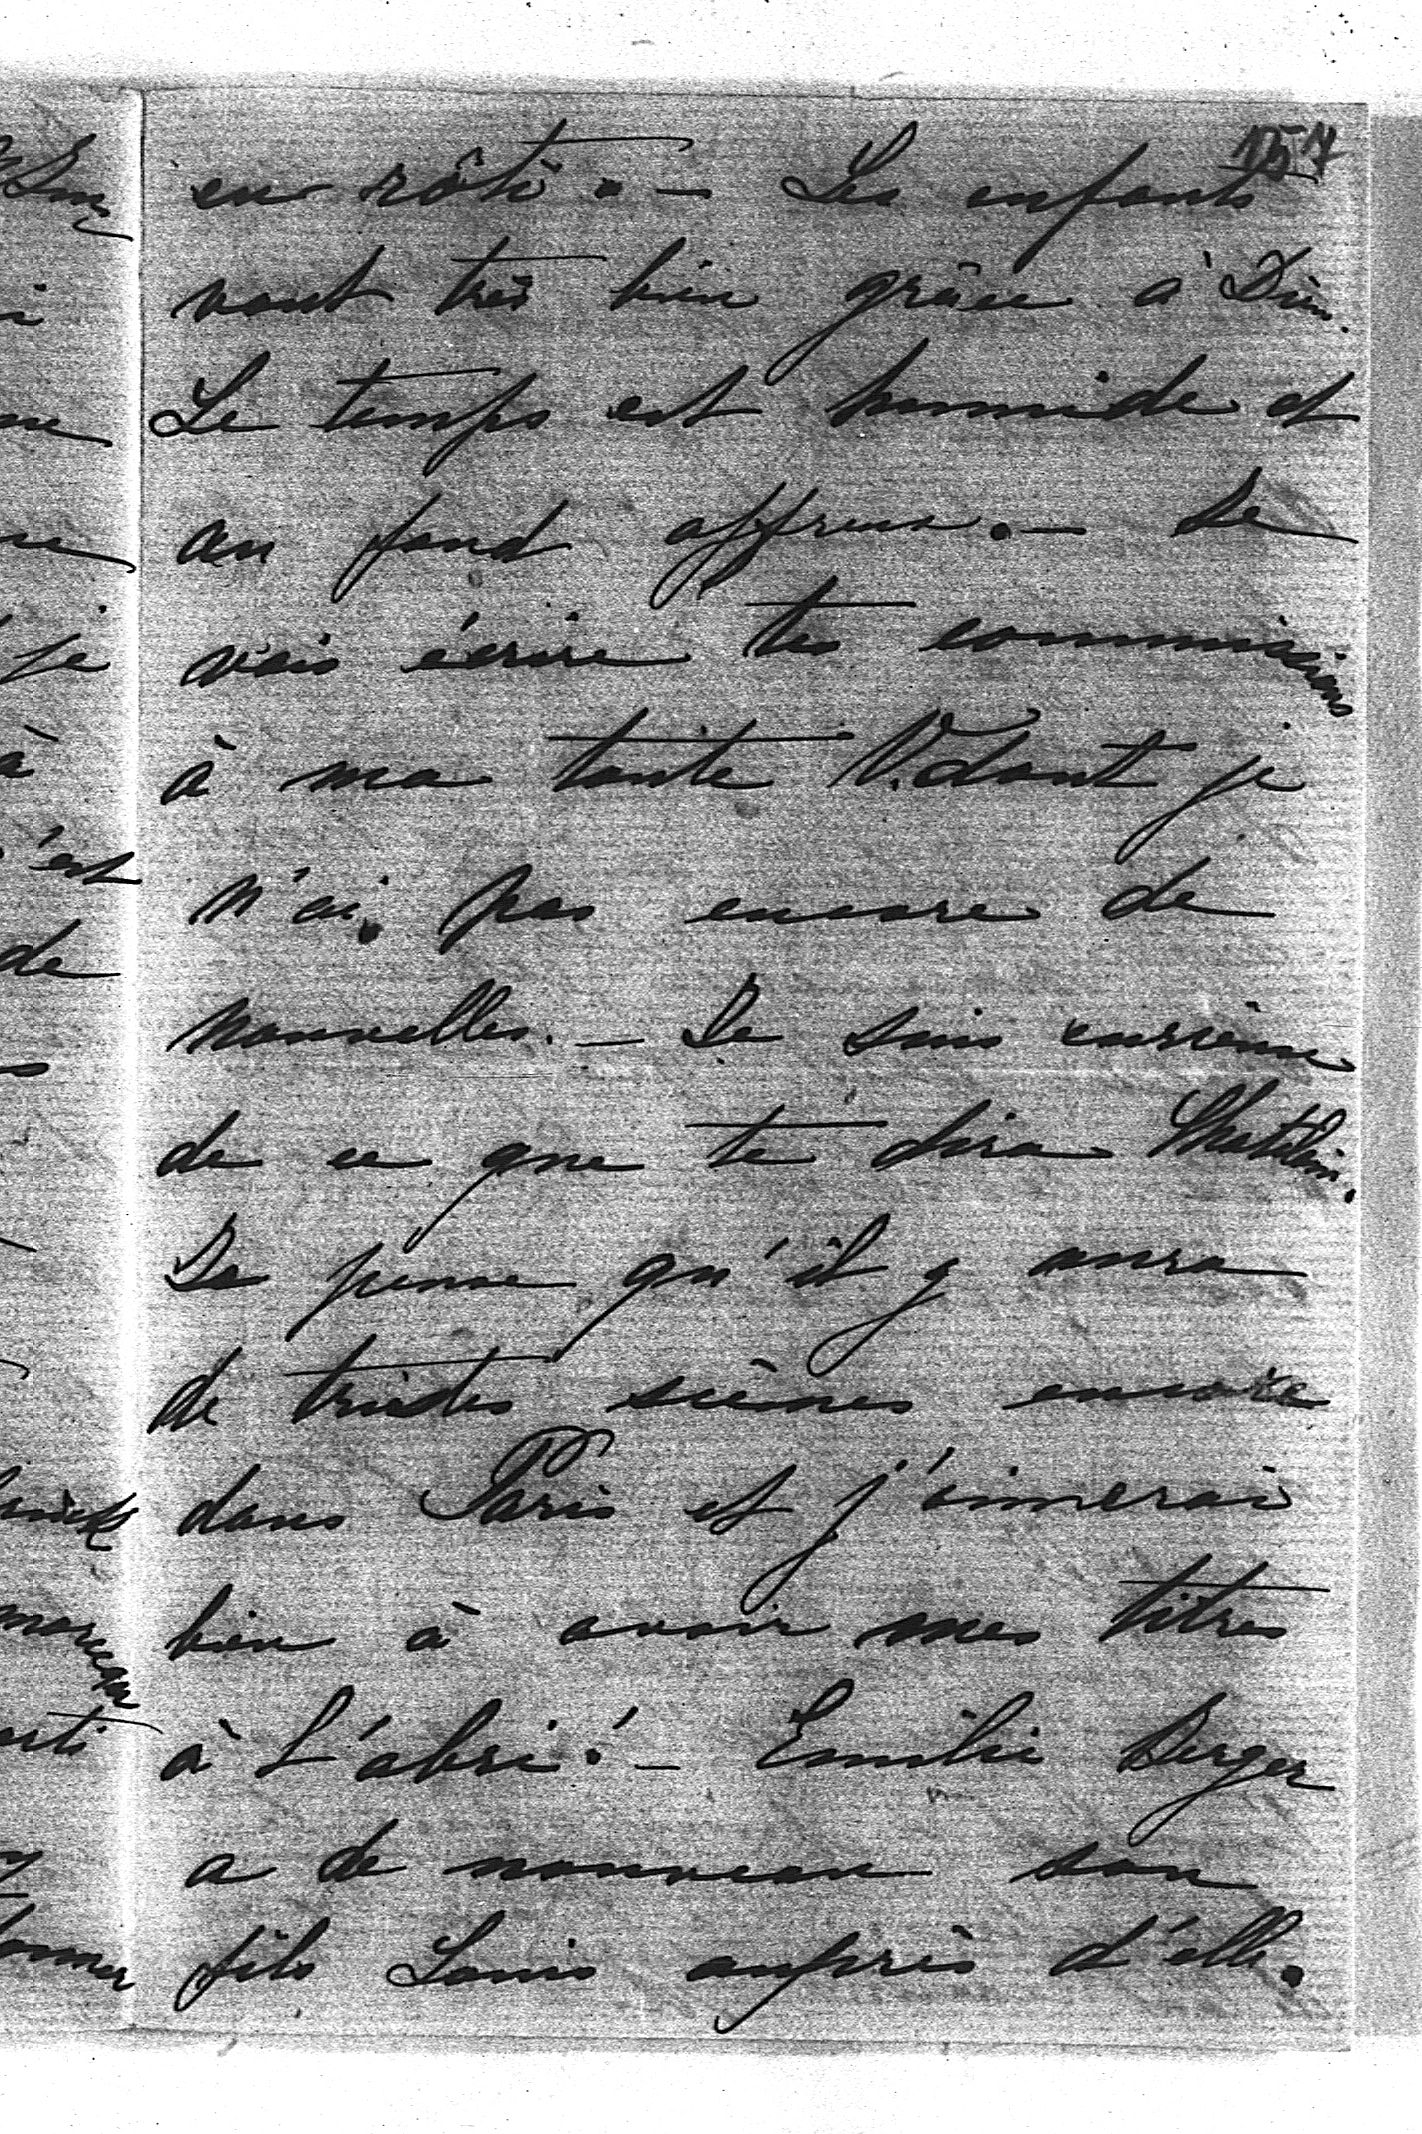 en rôti. — Les enfants
vont très bien grâce à Dieu.
Le temps est humide et
au fond affreux. — Je
vais écrire tes commissions
à ma tante V. dont je
n'ai pas encore de
nouvelles. — Je suis curieuse
de ce que te dira Chatelain.
Je pense qu'il y aura
de tristes scènes encore
dans Paris et j'aimerai
bien à avoir mes titres
à l'abri! — Emilie Berger
a de nouveau son
fils Louis auprès d'elle.